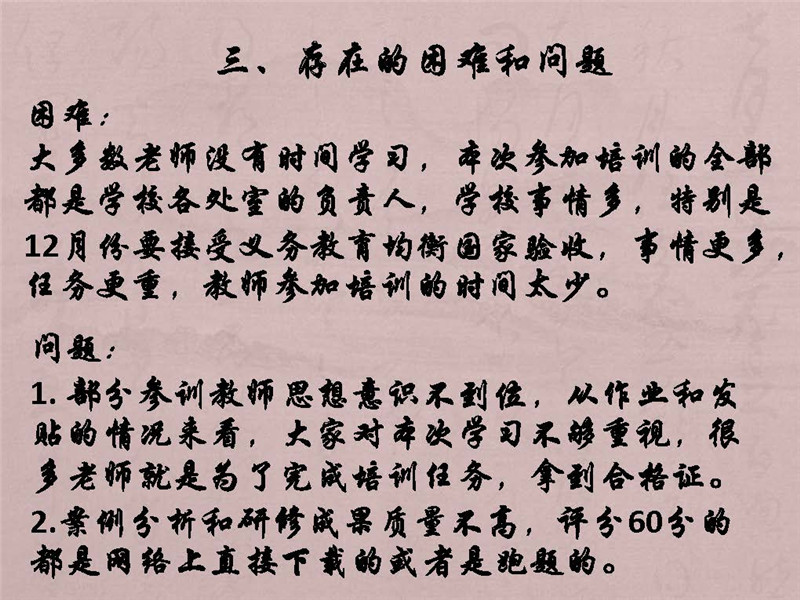 三、存在的困难和问题
困难：
大多数老师没有时间学习，本次参加培训的全部
都是学校各处室的负责人，学校事情多，特别是
12月份要接受义务教育均衡国家验收，事情更多，
任务更重，教师参加培训的时间太少。
问题：
1. 部分参训教师思想意识不到位，从作业和发
贴的情况来看，大家对本次学习不够重视，很
多老师就是为了完成培训任务，拿到合格证。
2.案例分析和研修成果质量不高，评分60分的
都是网络上直接下载的或者是跑题的。